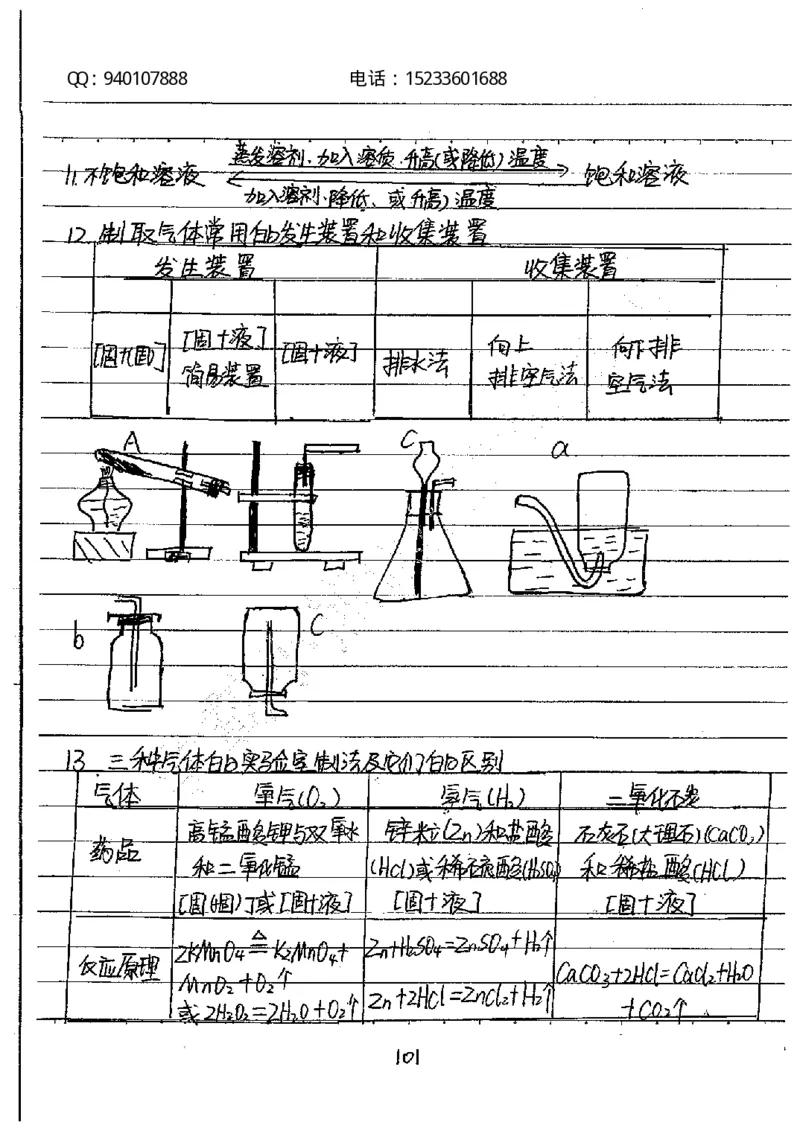 QQ：940107888 电话：15233601688
蒸发溶剂、加入溶质、升高(或降低)温度
11.不饱和溶液 饱和溶液
加入溶剂、降低、或升高)温度
12 制取气体常用的发生装置和收集装置
发生装置 收集装置
[固+(固)] [固+液] 简易装置 [固+液] 排水法 向上排空气法 向下排空气法
A C a
b C
13 三种气体的实验室制法及它们的区别
气体 氧气(O₂) 氢气(H₂) 二氧化碳
药品 高锰酸钾与双氧水 锌粒(Zn)和盐酸 石灰石(大理石)(CaCO₃)
和二氧化锰 (HCl)或稀硫酸(H₂SO₄) 和稀盐酸(HCL)
[固(+固)]或[固+液] [固+液] [固+液]
反应原理 2KMnO₄≙K₂MnO₄+ Zn+H₂SO₄=ZnSO₄+H₂↑
MnO₂+O₂↑ CaCO₃+2HCl=CaCl₂+H₂O
或2H₂O₂=2H₂O+O₂↑ Zn+2HCl=ZnCl₂+H₂↑ +CO₂↑
101